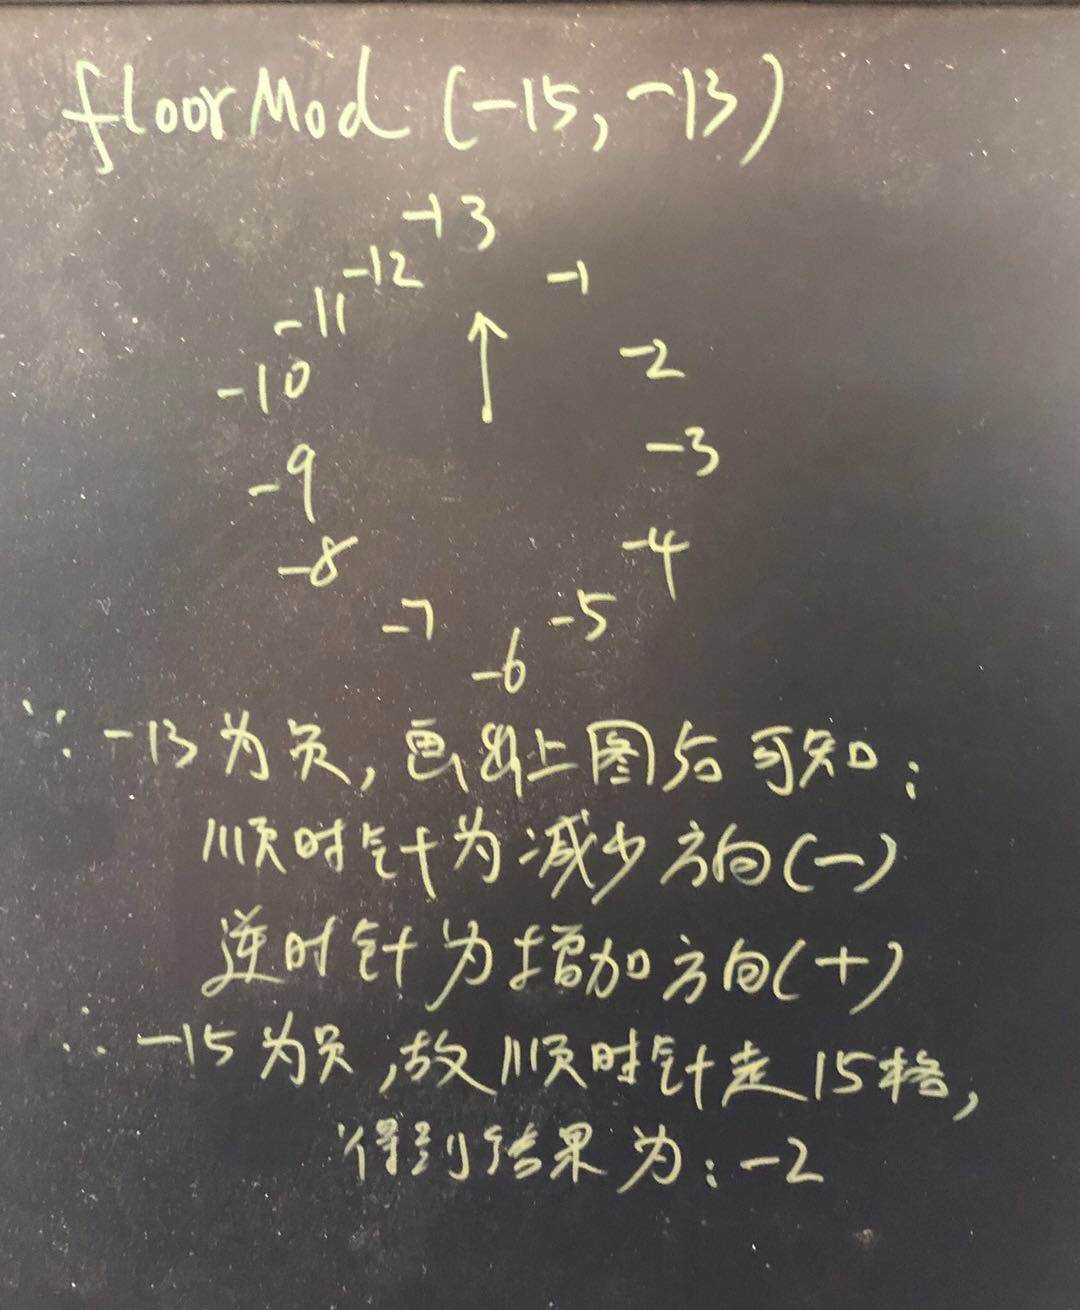 floorMod (-15, -13)
-13
-12
-1
-11
-2
-10
-3
-9
-4
-8
-5
-7
-6
∵ -13为负, 画出上图后可知:
顺时针为减少方向(-)
逆时针为增加方向(+)
∴ -15为负, 故顺时针走15格,
得到结果为: -2